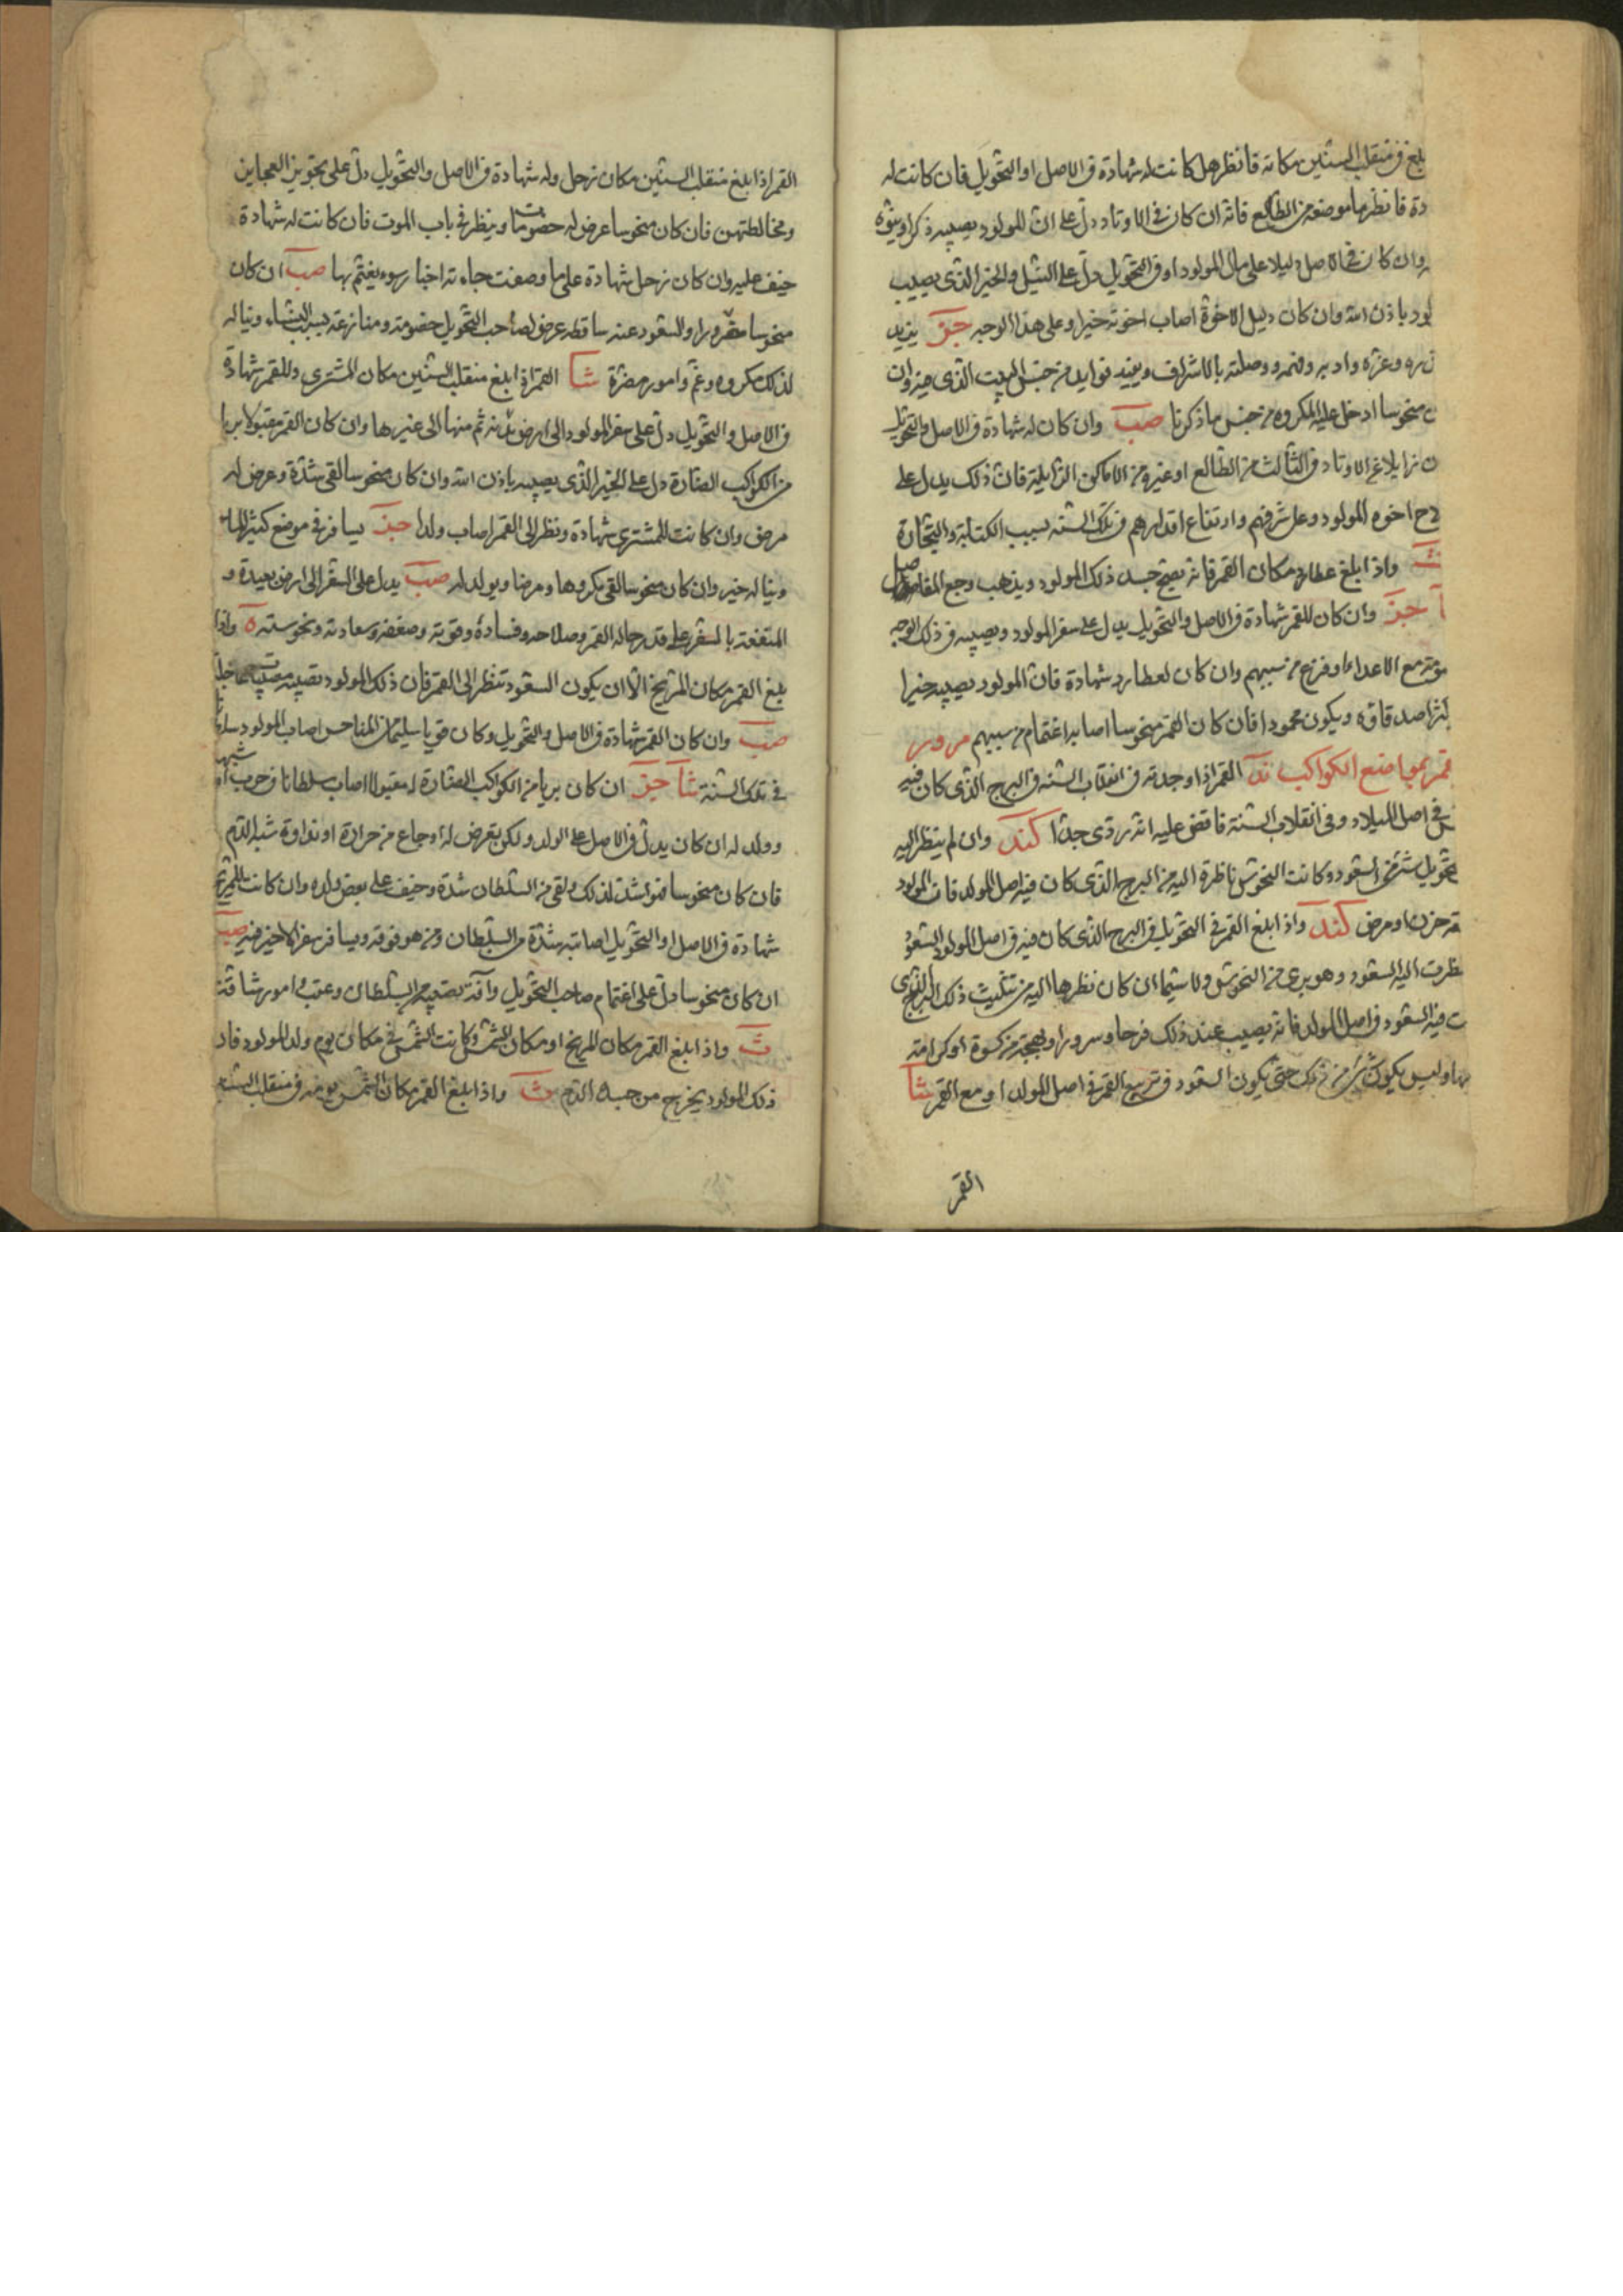 بلغ في منقلب السنين مكانه فانظر هل كانت له شهادة في الاصل او التحويل فان كانت له
دة فانظر ما موضعه من الطالع فانه ان كان في الاوتاد دل على ان المولود يصيبه ذكر
وان كان في الاصل دليلا على مال المولود او في التحويل دل على النيل والخير الذي يصيب
لود باذن الله وان كان دليل الاخوة اصاب اخوته خيرا وعلى هذا الوجه يزيد
وعزه وادبه وفهمه ووصلته بالاشراف ويفيد فوايد من جنس البيت الذي هو
منحوسا ادخل عليه المكروه من جنس ما ذكرنا صب وان كان له شهادة في الاصل والتحويل
ن زايلا عن الاوتاد في الثالث من الطالع او غيره من الاماكن الزايلة فان ذلك يدل على
ح اخوه المولود وعلى شرفهم وارتفاع اقدارهم في تلك السنه بسبب الكتابة والتجارة
ث واذا بلغ عطارد مكان القمر فانه يصح جسد ذلك المولود ويذهب وجع المفاصل
وان كان للقمر شهادة في الاصل والتحويل يدل على سفر المولود ويصيبه في ذلك الوجه
مع الاعداء او فزع من سببهم وان كان لعطارد شهادة فان المولود يصيبه خيرا
اصدقاؤه ويكون محمودا فان كان القمر منحوسا اصابه اغتمام من سببهم مرور
قمر بمواضع الكواكب ند القمر اذا وجدته في انقلاب السنه في البرج الذي كان فيه
في اصل الميلاد وفي انقلاب السنة فاقض عليه انه ردى جدا كند وان لم ينظر اليه
تحويل شئ من السعود وكانت النحوس ناظرة اليه من البرج الذي كان فيه اصل المولد فان المولود
حزن او مرض كند واذا بلغ القمر في التحويل في البرج الذي كان فيه في اصل المولود السعود
نظرت اليه السعود وهو برى من النحوس ولا سيما ان كان نظرها اليه من تثليث ذلك البرج الذي
ت فيه السعود في اصل المولد فانه يصيب عند ذلك فرحا وسرورا وبهجة من كسوة او كرامة
وليس يكون شئ من ذلك حتى يكون السعود في تربيع القمر في اصل المولد او مع القمر شا
القمر
القمر اذا بلغ منقلب السنين مكان زحل وله شهادة في الاصل والتحويل دل على تجويز العجايز
ومخالطتهن فان كان منحوسا عرض له خصومات وينظر في باب الموت فان كانت له شهادة
خيف عليه وان كان زحل شهادة على ما وصفت جاءته اخبار سوء يغتم بها صب ان كان
منحوسا والسعود عنه ساقطه عرض لصاحب التحويل خصومة ومنازعة بسبب النساء ويناله
لذلك مكروه وغم وامور مضرة شا القمر اذا بلغ منقلب السنين مكان المشترى وللقمر شهادة
في الاصل والتحويل دل على سفر المولود الى ارض ثم منها الى غيرها وان كان القمر مقبولا بريا
من الكواكب الضارة دل على الخير الذي يصيبه باذن الله وان كان منحوسا لقى شدة وعرض له
مرض وان كانت للمشترى شهادة ونظر الى القمر اصاب ولدا يسافر في موضع كثير الماء
ويناله خير وان كان منحوسا لقى مكروها ومرضا ويولد له صب يدل على السفر الى ارض بعيدة و
المنفعة بالسفر على قدر حاله القمر وصلاحه وفساده وقوته وضعفه وسعادته ونحوسته ه واذا
بلغ القمر مكان المريخ الا ان يكون السعود تنظر الى القمر فان ذلك المولود تصيبه
صب وان كان القمر شهادة في الاصل والتحويل وكان قويا سليما من المناحس اصاب المولود
في تلك السنة شا ان كان بريا من الكواكب الضارة له مقبولا اصاب سلطانا في حرب او شبهها
وولد له ان كان يدل في الاصل على الولد ولكن يعرض له اوجاع من حرارة او شبه الدم
فان كان منحوسا فهو اشد لذلك ولقى من السلطان شدة وخيف على بعض ولده وان كانت للمريخ
شهادة في الاصل او التحويل اصابته شدة من السلطان ومن هو فوقه ويسافر سفرا لا خير فيه صب
ان كان منحوسا دل على اغتمام صاحب التحويل وآفة تصيبه من السلطان وامور شاقة
ث واذا بلغ القمر مكان المريخ او مكان الشمس وكانت الشمس في مكان يوم ولد المولود فان
ذلك المولود يخرج من جسده الدم ث واذا بلغ القمر مكان الشمس في منقلب السنة